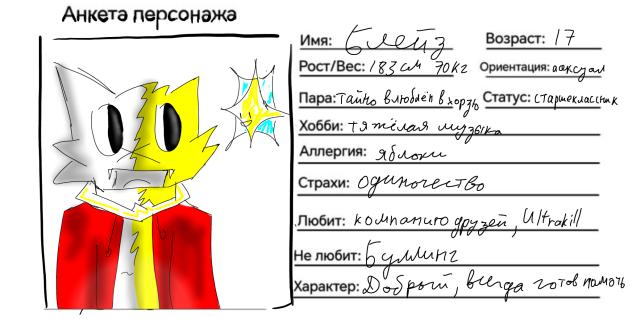 Анкета персонажа
Имя: Блейз Возраст: 17
Рост/Вес: 183 см 70кг Ориентация: асексуал
Пара: тайно влюблён в хорзь Статус: старшеклассник
Хобби: тяжёлая музыка
Аллергия: яблоки
Страхи: одиночество
Любит: компанию друзей, Ultrakill
Не любит: Буллинг
Характер: Добрый, всегда готов помочь